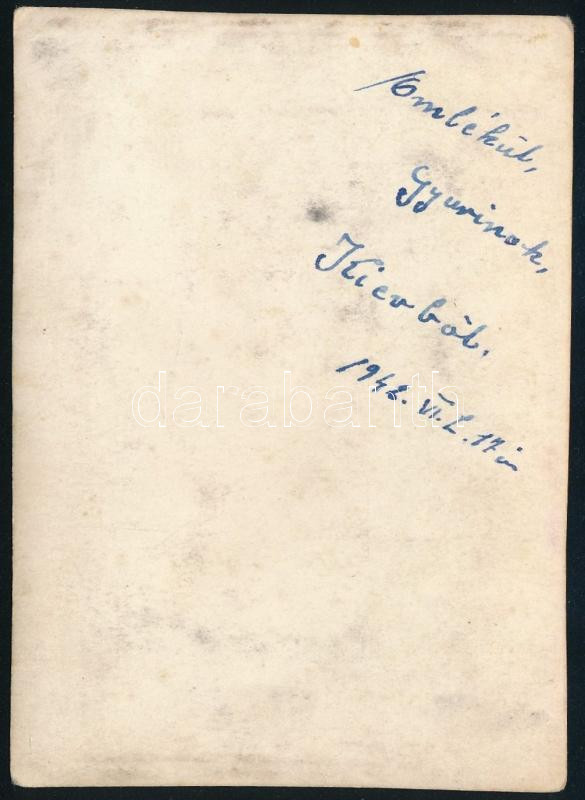 Emlékül,
Gyurinak,
Kievből.
1942. VI. 2. 17 én
darabanth